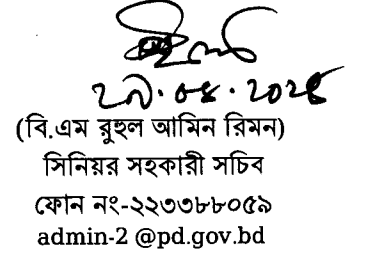 (বি.এম রুহুল আমিন রিমন)
সিনিয়র সহকারী সচিব
ফোন নং-২২৩৩৮৮০৫৯
admin-2 @pd.gov.bd